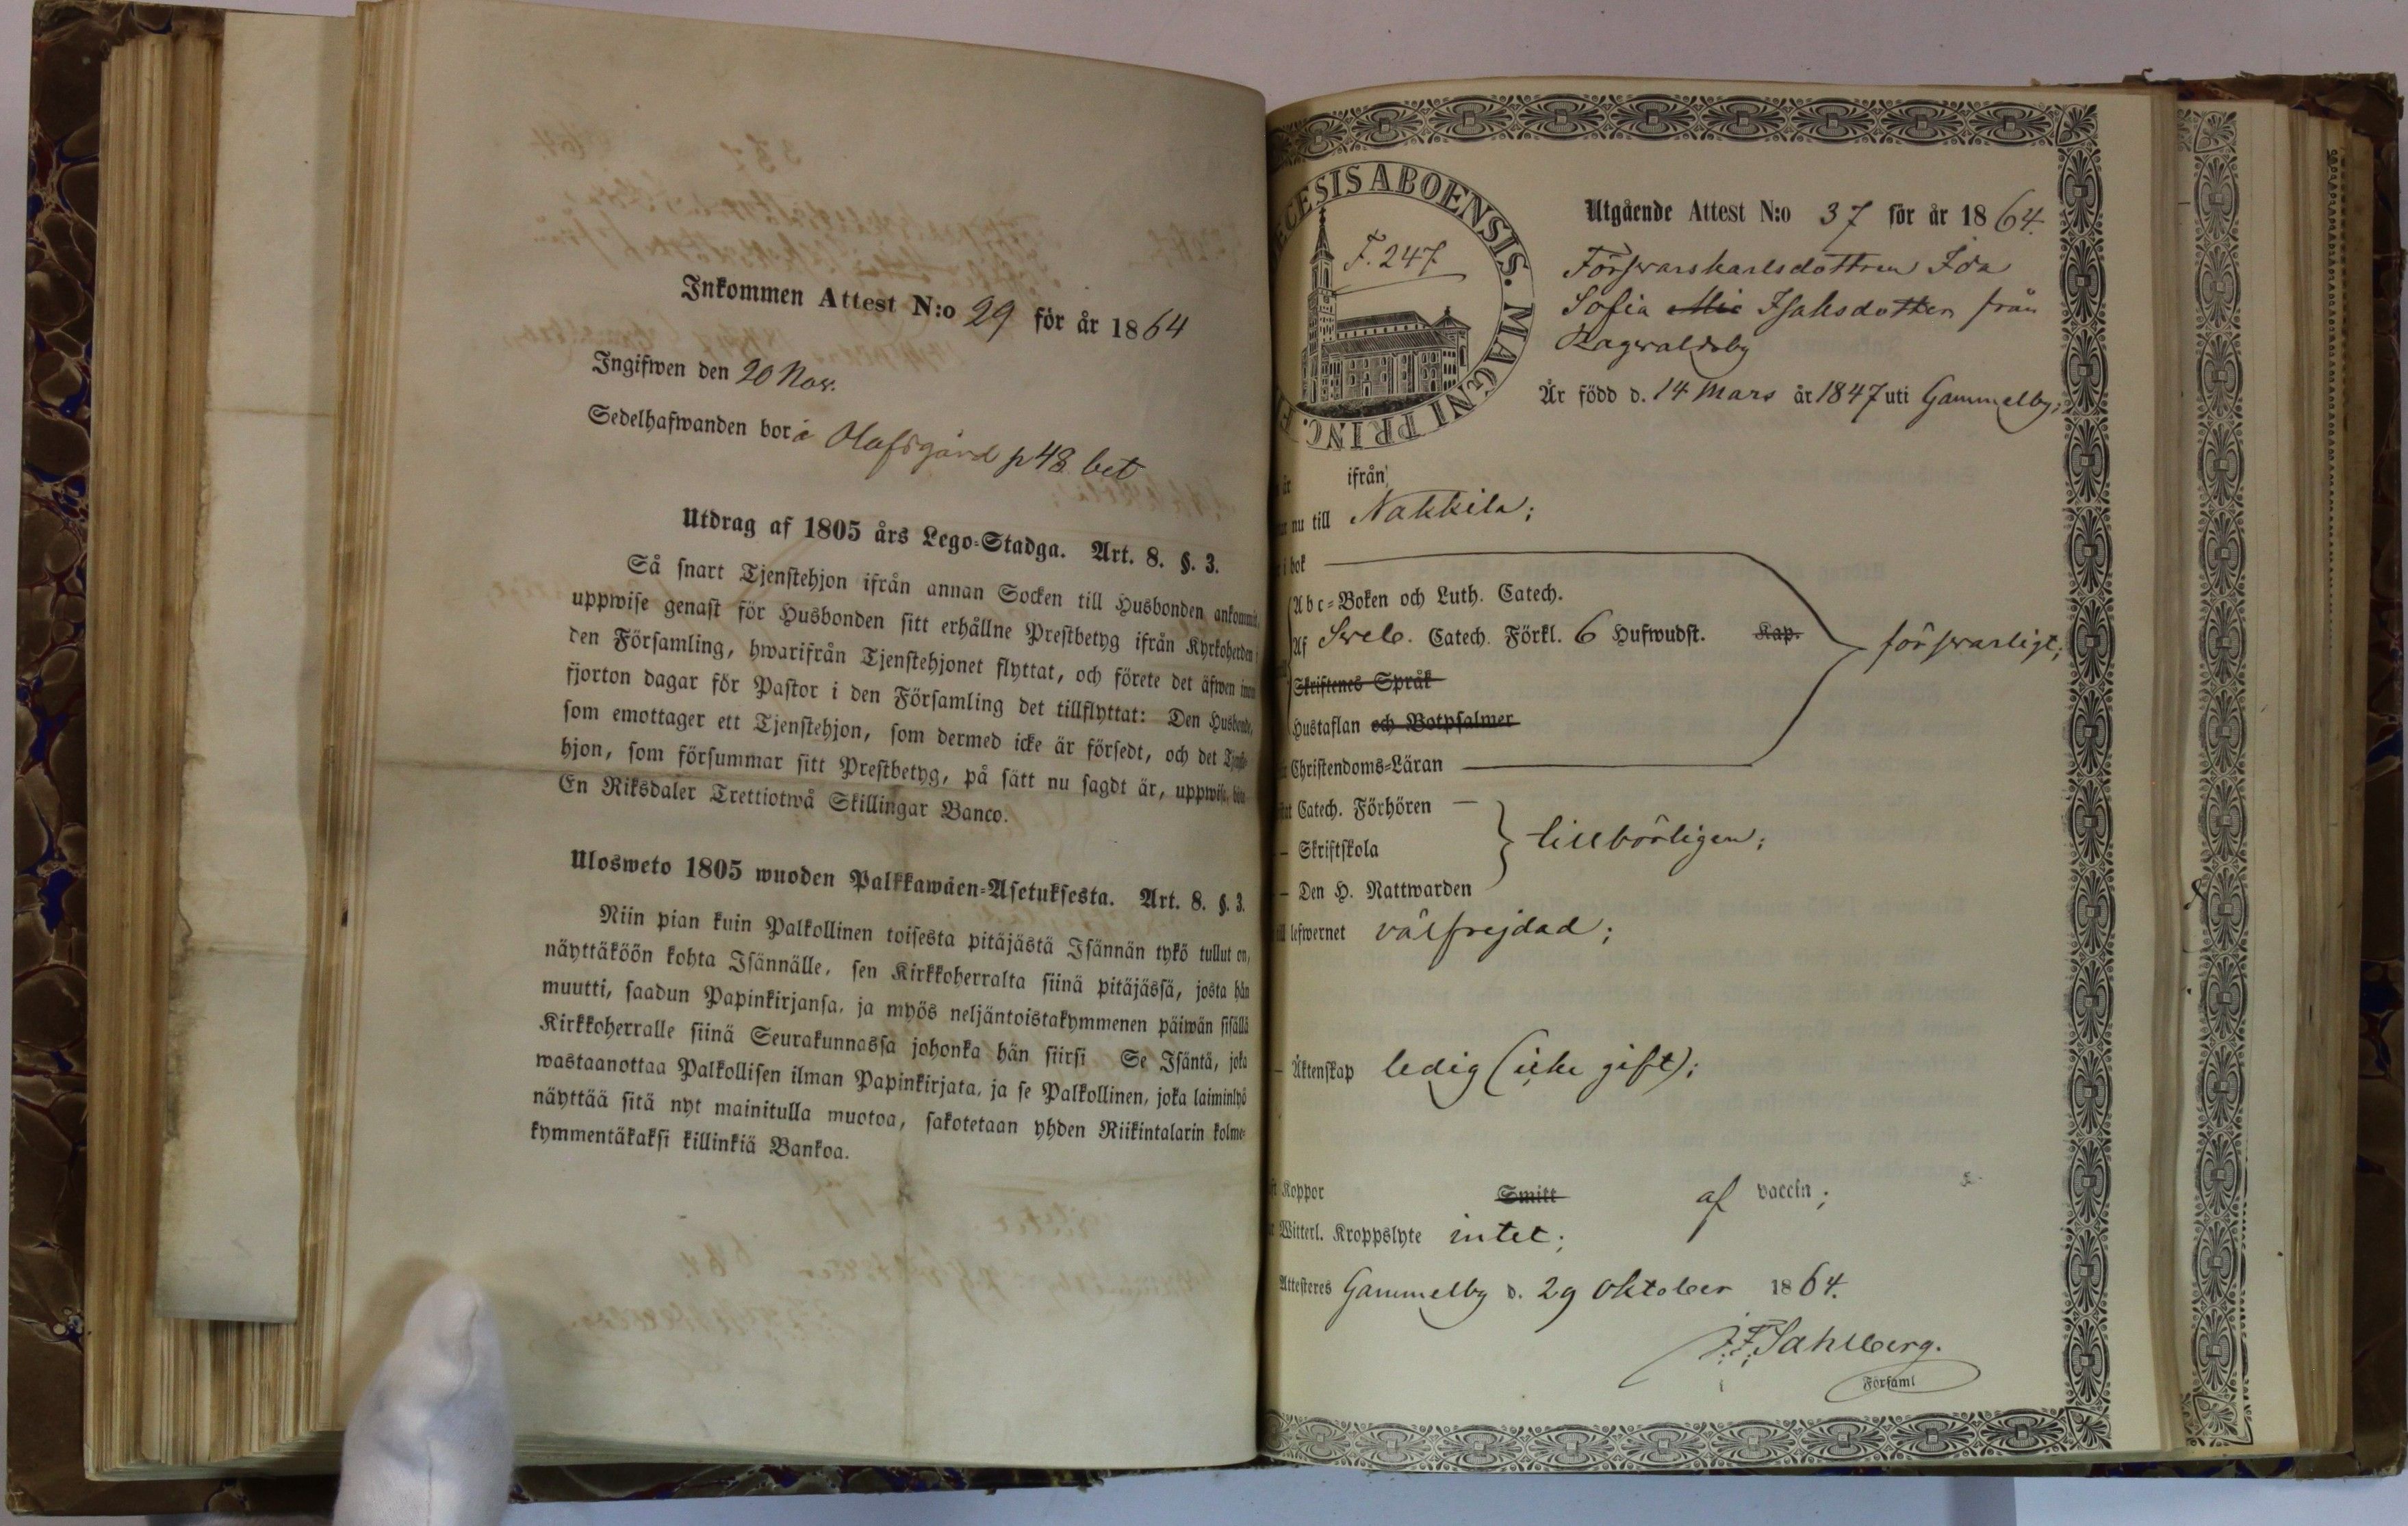 Inkommen Attest N:o 29 för år 1864
Ingifwen den 20 Nov.
Sedelhafwanden bor å Olofsgård p 48 bet
Utdrag af 1805 års Lego-Stadga. Art. 8. §. 3.
Så snart Tjenstehjon ifrån annan Socken till Husbonden ankommit,
uppwise genast för Husbonden sitt erhållne Prestbetyg ifrån Kyrkoherden i
den Församling, hwarifrån Tjenstehjonet flyttat, och förete det äfwen inom
fjorton dagar för Pastor i den Församling det tillflyttat: Den Husbonde,
som emottager ett Tjenstehjon, som dermed icke är försedt, och det Tjenste-
hjon, som försummar sitt Prestbetyg, på sätt nu sagdt är, uppwisa, böte
En Riksdaler Trettiotwå Skillingar Banco.
Ulosweto 1805 wuoden Palkkawäen-Asetuksesta. Art. 8. §. 3.
Niin pian kuin Palkollinen toisesta pitäjästä Isännän tykö tullut on,
näyttäköön kohta Isännälle, sen Kirkkoherralta siinä pitäjässä, josta hän
muutti, saadun Papinkirjansa, ja myös neljäntoistakymmenen päiwän sisällä
Kirkkoherralle siinä Seurakunnassa johonka hän siirsi Se Isäntä, joka
wastaanottaa Palkollisen ilman Papinkirjata, ja se Palkollinen, joka laiminlyö
näyttää sitä nyt mainitulla muotoa, sakotetaan yhden Riikintalarin kolme-
kymmentäkaksi killinkiä Bankoa.
ECESIS ABOENSIS. MAGNI PRINC. F
F. 247
Utgående Attest N:o 37 för år 1864.
Förswarskarlsdottren Ida
Sofia Mic Isaksdotter från
Ragwaldsby
Är född d. 14 Mars år 1847 uti Gammelby;
är ifrån
nu till Nakkila;
i bok
Abc-Boken och Luth. Catech.
Af Sweb. Catech. Förkl. 6 Hufwudst. Kap. förswarligt;
Skriftenes Språk
Hustaflan och Botpsalmer
Christendoms-Läran
Catech. Förhören
– Skriftskola tillbörligen;
– Den H. Nattwarden
till lefwernet välfrejdad;
– Äktenskap ledig (icke gift);
Koppor Smitt af vaccin;
Witterl. Kroppslyte intet;
Attesteres Gammelby d. 29 Oktober 1864.
J. F. Sahlberg.
Församl